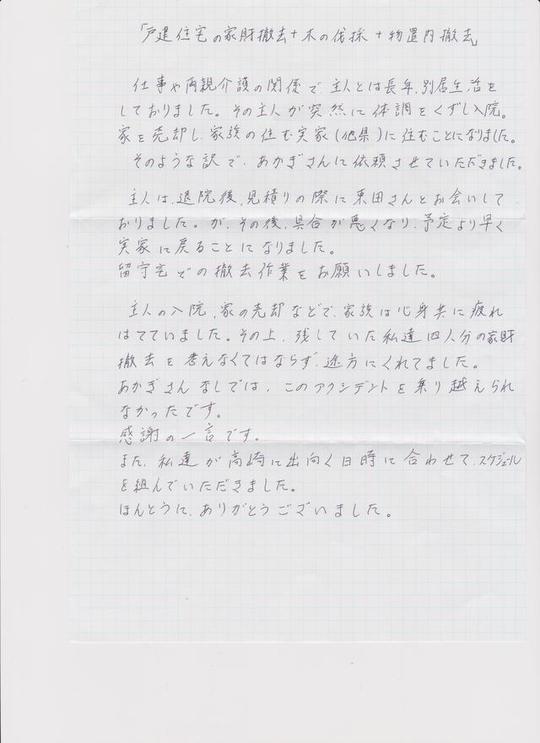 「戸建住宅の家財撤去+木の伐採+物置内撤去」
仕事や両親介護の関係で主人とは長年、別居生活を
しておりました。その主人が突然に体調をくずし入院。
家を売却し、家族の住む実家(他県)に住むことになりました。
そのような訳で、あかぎさんに依頼させていただきました。
主人は、退院後、見積りの際に栗田さんとお会いして
おりました。が、その後、具合が悪くなり、予定より早く
実家に戻ることになりました。
留守宅での撤去作業をお願いしました。
主人の入院、家の売却などで、家族は心身共に疲れ
はてていました。その上、残していた私達四人分の家財
撤去を考えなくてはならず、途方にくれてました。
あかぎさんなしでは、このアクシデントを乗り越えられ
なかったです。
感謝の一言です。
また、私達が高崎に出向く日時に合わせて、スケジュール
を組んでいただきました。
ほんとうに、ありがとうございました。